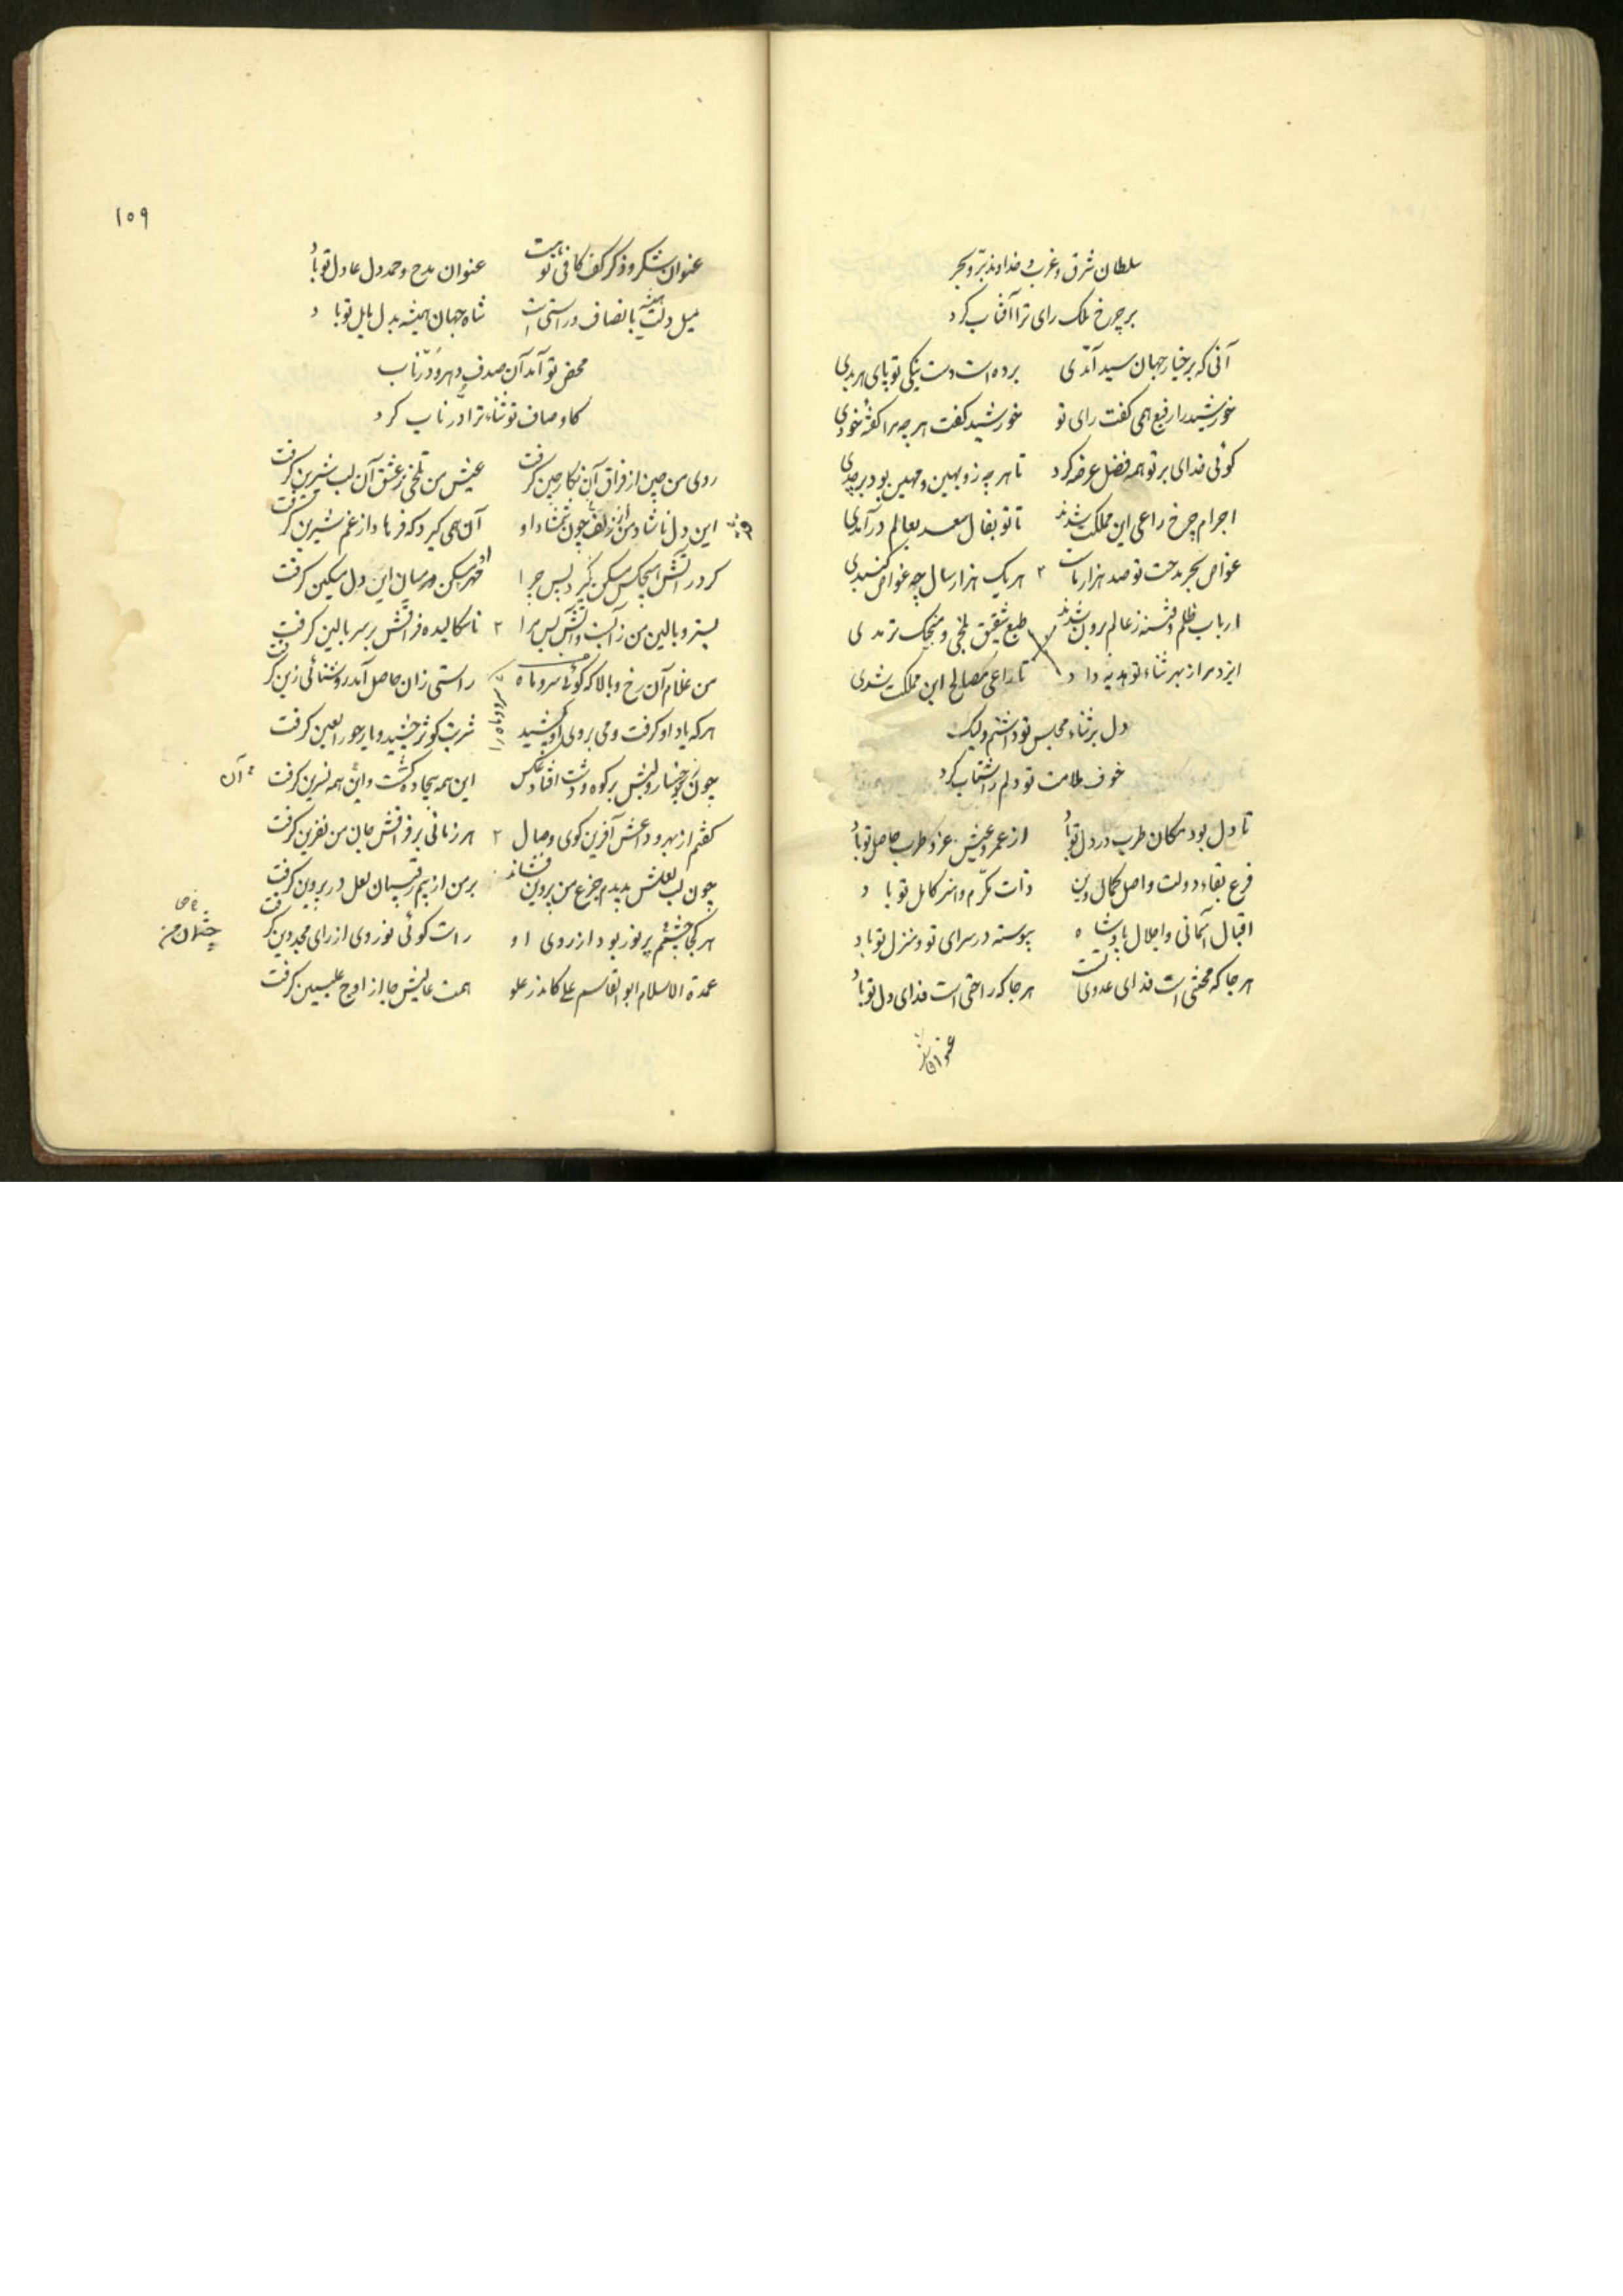 سلطان شرق و غرب و خداوند بر و بحر
بر چرخ ملک رای ترا آفتاب کرد
آنی که بر خیار جهان سید آمدی برده است دست نیکی تو پای هر بدی
خورشید را رفیع همی کفت رای تو خورشید کفت هر چه مرا کفته خودی
کوئی خدای بر تو همه فضل عرضه کرد تا هر چه زو بهین و مهین بود برچدی
اجرام چرخ راعی این مملکت شدند تا تو بفال سعد بعالم درآمدی
غواص بحر مدحت تو صد هزار هر یک هزار سال چه غواص
ارباب ظلم و فتنه ز عالم برون شدند طبع شقیق بلخی و منجیک ترمدی
ایزد مرا ز بهر ثناء تو هدیه داد تا راعی مصالح این مملکت شدی
دل بر ثناء مجلس تو داشتم ولیک
خوف ملامت تو دلم را شتاب کرد
تا دل بود مکان طرب در دل تو باد از عمر و عیش عز و طرب حاصل تو باد
فرع بقاء دولت و اصل کمال دین ذات مکرم و هنر کامل تو باد
اقبال آسمانی و اجلال پادشاه پیوسته در سرای تو و منزل تو باد
هر جا که محنتی است فدای عدوی تست هر جا که راحتی است فدای دل تو باد
عنوان
۱۵۹
عنوان شکر و ذکر کف کافی تو عنوان مدح و حمد دل عادل تو باد
میل دلت همیشه بانصاف و راستی است شاه جهان همیشه بدل مایل تو باد
محض تو آمد آن صدف
کاوصاف تو ثناء ترا در ناب کرد
روی من چین از فراق آن نکار چین کرفت عیش من تلخی ز عشق آن لب شیرین کرفت
این دل ناشاد من از زلف چون شمشاد او آن همی کیرد که فرهاد از غم شیرین کرفت
کر در آتش هیچکس مسکن نکیرد پس چرا مسکن در میان این دل مسکین کرفت
بستر و بالین من ز آبست و آتش پس مرا ۲ فراقش بر سر بالین کرفت
من غلام آن رخ و بالا که کوئی سرو و ماه راستی زان حاصل آمد روشنائی زین کرفت
سرو و ماه را
هر که یاد او کرفت و می بروی او کشید شربت کوثر چشید و یار حور العین کرفت
چون ز رخسار و لبش بر کوه و دشت افتاد عکس این همه بیجاده کشت و این همه نسرین کرفت
آن
کفتم از بهر وداعش آفرین کوی وصال ۲ هر زمانی بر فراقش جان من نفرین کرفت
چون لب لعلش بدیدم جزع من پروین فشاند بر من از بیم رقیبان لعل در پروین کرفت
هر کجا چشمم پر نور بود از روی او راست کوئی نور وی از رای مجد دین کرفت
چشمان من
عمدة الاسلام ابو القاسم علی کاندر علو همت عالیش جا از اوج علیین کرفت